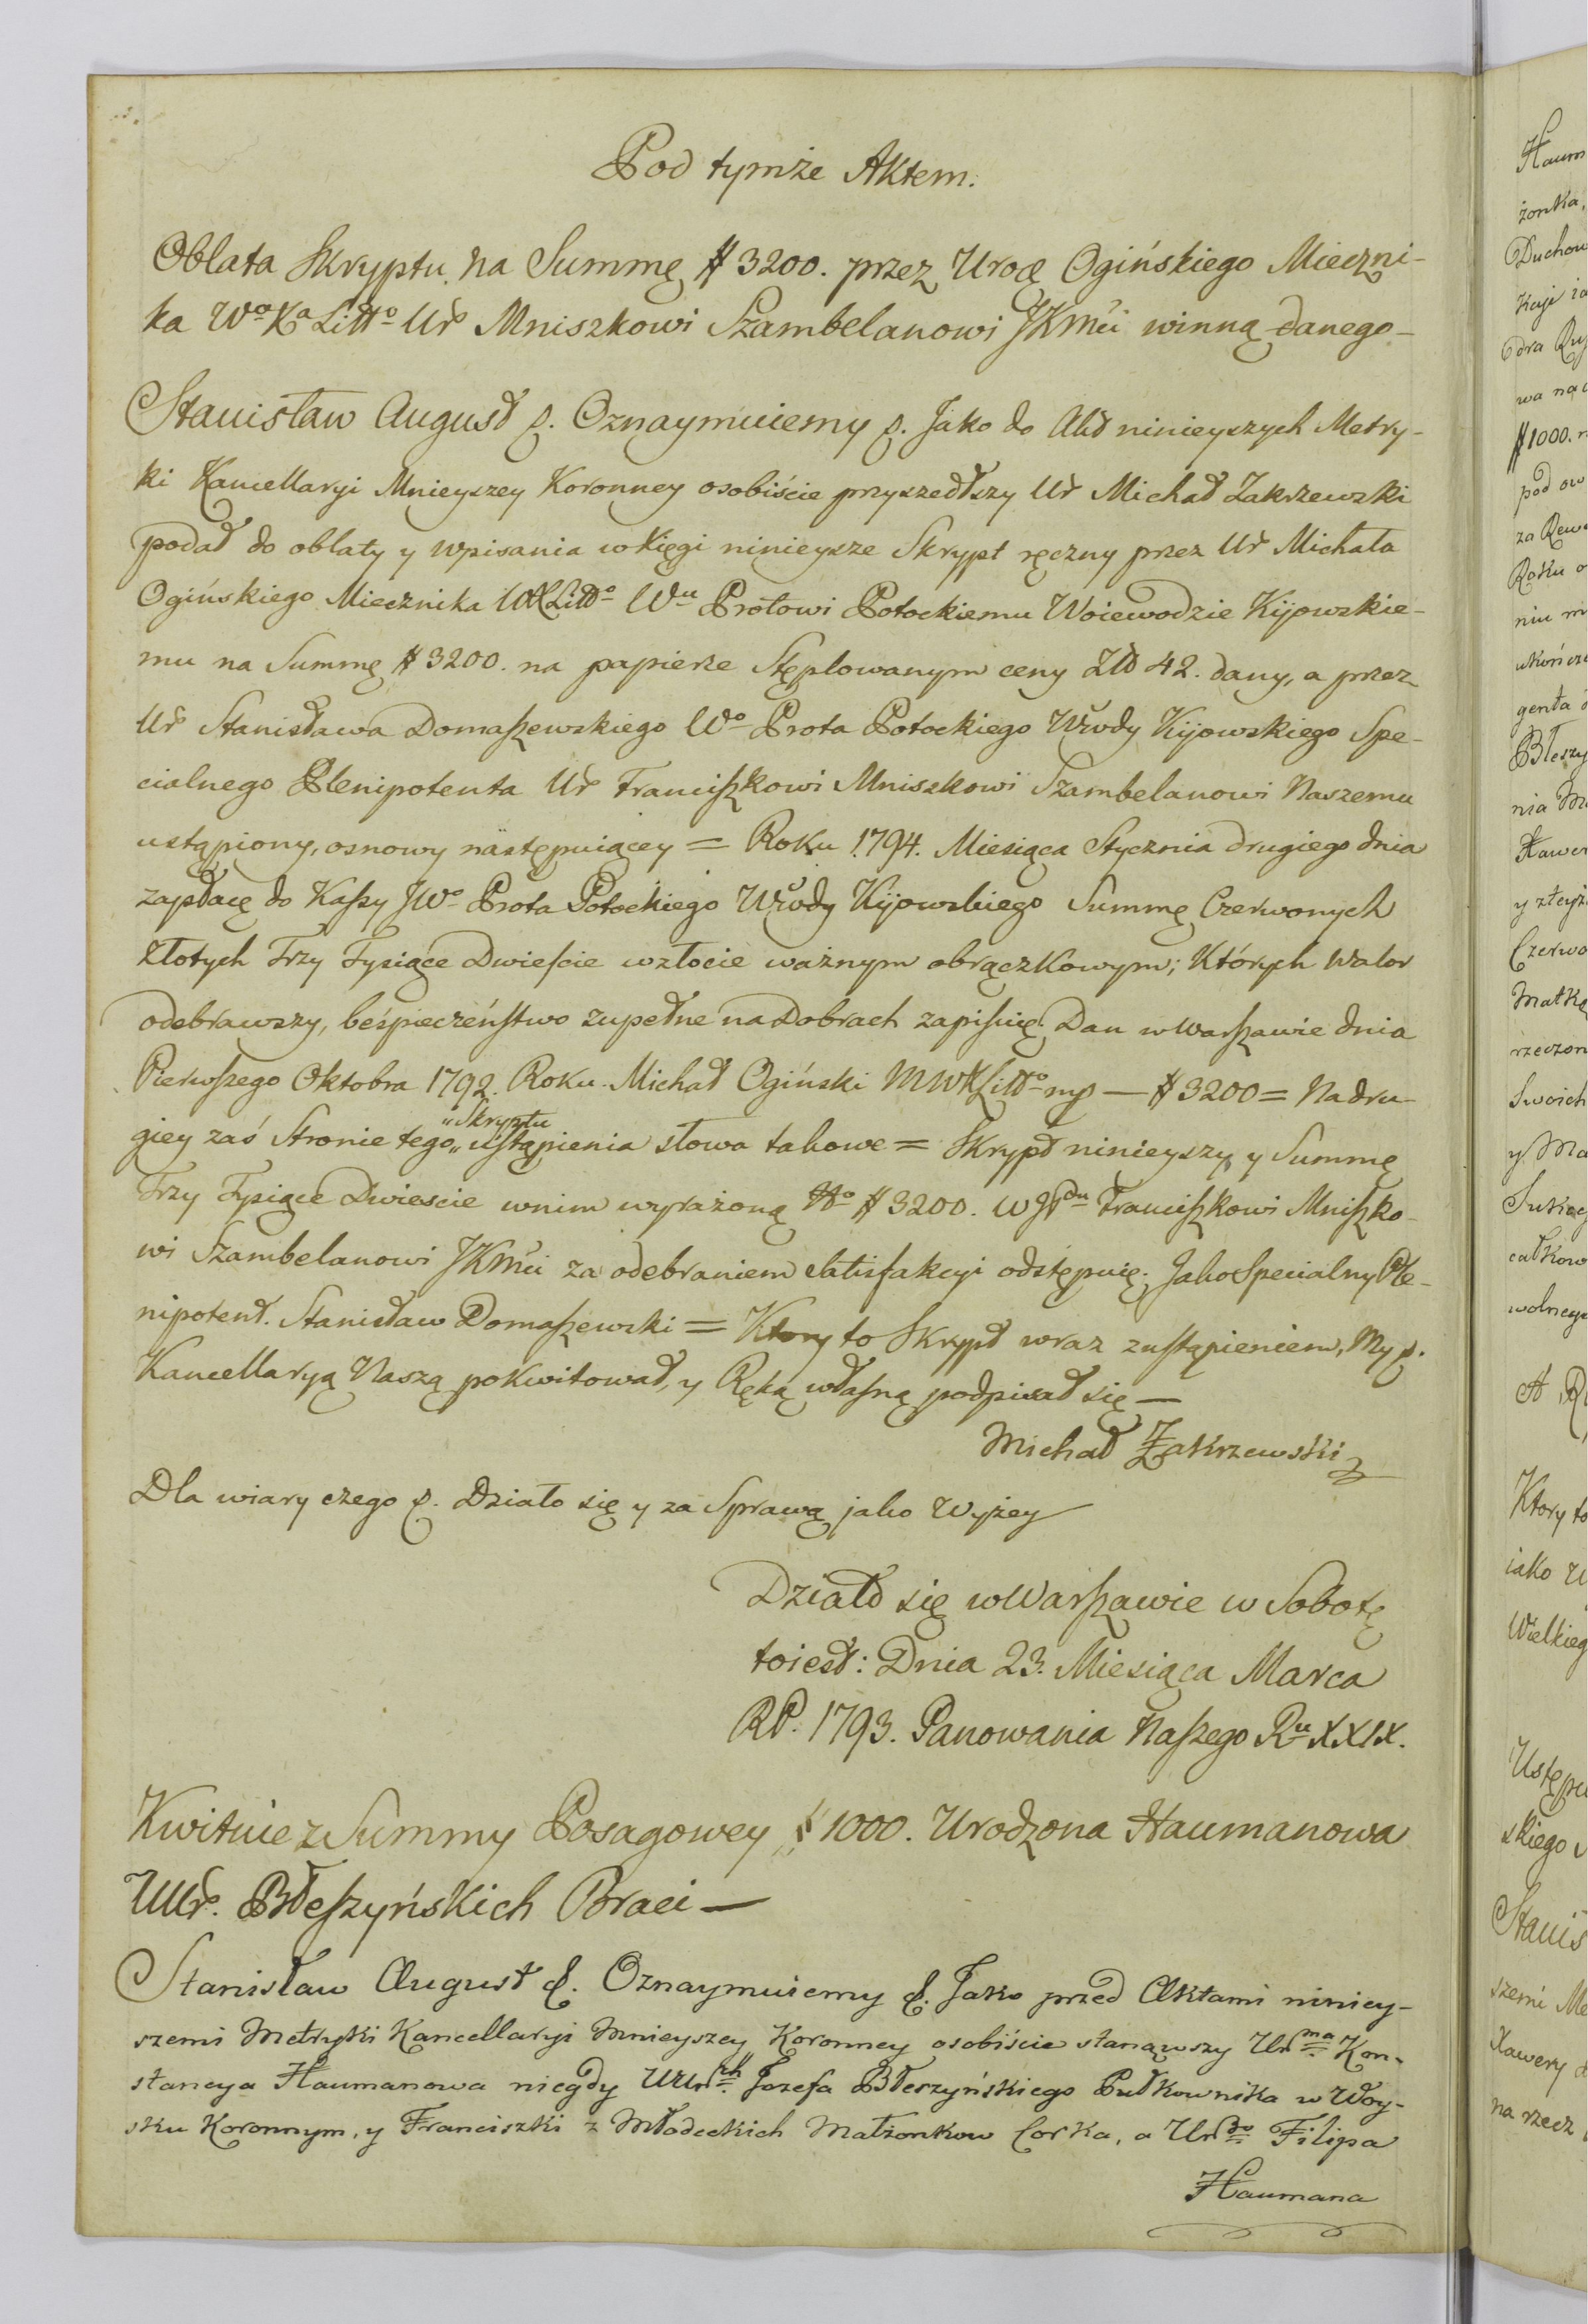 Pod tymże Aktem.
Oblata Skryptu na Summę # 3200. przez Urogę Ogińskiego Mieczni-
ka Wo Ka Litto Ur Mniszkowi Szambelanowi JKMci winną danego
Stanisław August p. Oznaymuiemy p. Jako do Akt ninieyszych Metry-
ki Kancellaryi Mnieyszey Koronney osobiście przyszedłszy Ur Michał Zakrzewski
podał do oblaty y wpisania w Xięgi ninieysze Skrypt ręczny przez Ur Michała
Ogińskiego Miecznika WXLitto Wu Protowi Potockiemu Woiewodzie Kijowskie-
mu na Summę # 3200. na papierze Stęplowanym ceny Złt 42. dany, a przez
Ur Stanisława Domaszewskiego Wo Prota Potockiego Wwdy Kijowskiego Spe-
cialnego Plenipotenta Ur Franciszkowi Mniszkowi Szambelanowi Naszemu
ustąpiony, osnowy następuiącey = Roku 1794. Miesiąca Stycznia drugiego dnia
zapłacę do Kassy JWo Prota Potockiego Wwdy Kijowskiego Summę Czerwonych
Złotych Trzy Tysiące Dwieście w złocie ważnym obrączkowym; Których Walor
odebrawszy, beśpieczeństwo zupełne na Dobrach zapisuię. Dan w Warszawie dnia
Pierwszego Oktobra 1792. Roku. Michał Ogiński MWXLitto mp — # 3200 = Na dru-
giey zaś Stronie tego „Skryptu „ustąpienia słowa takowe = Skrypt ninieyszy y Summę
Trzy Tysiące Dwieście w nim wyrażoną No # 3200. WJPdu Franciszkowi Mniszko-
wi Szambelanowi JKMci za odebraniem Satisfakcyi odstępuię. Jako Specialny Ple-
nipotent. Stanisław Domaszewski = Ktory to Skrypt wraz z ustąpieniem, My p.
Kancellaryą Naszą pokwitował, y Ręką własną podpisał się —
Michał Zakrzewski
Dla wiary czego p. Działo się y za Sprawą jako Wyżey
Działo się w Warszawie w Sobotę
to iest: Dnia 23. Miesiąca Marca
RP. 1793. Panowania Naszego Ru XXIX.
Kwituie z Summy Posagowey # 1000. Urodzona Haumanowa
UUr. Błeszyńskich Braci —
Stanisław August p. Oznaymuiemy p. Jako przed Aktami niniey-
szemi Metryki Kancellaryi Mnieyszey Koronney osobiście stanąwszy Urma Kon-
stancya Haumanowa niegdy UUrch Jozefa Błeszyńskiego Pułkownika w Woy-
sku Koronnym, y Franciszki z Młodeckich Małżonkow Corka, a Urgo Filipa
Haumana